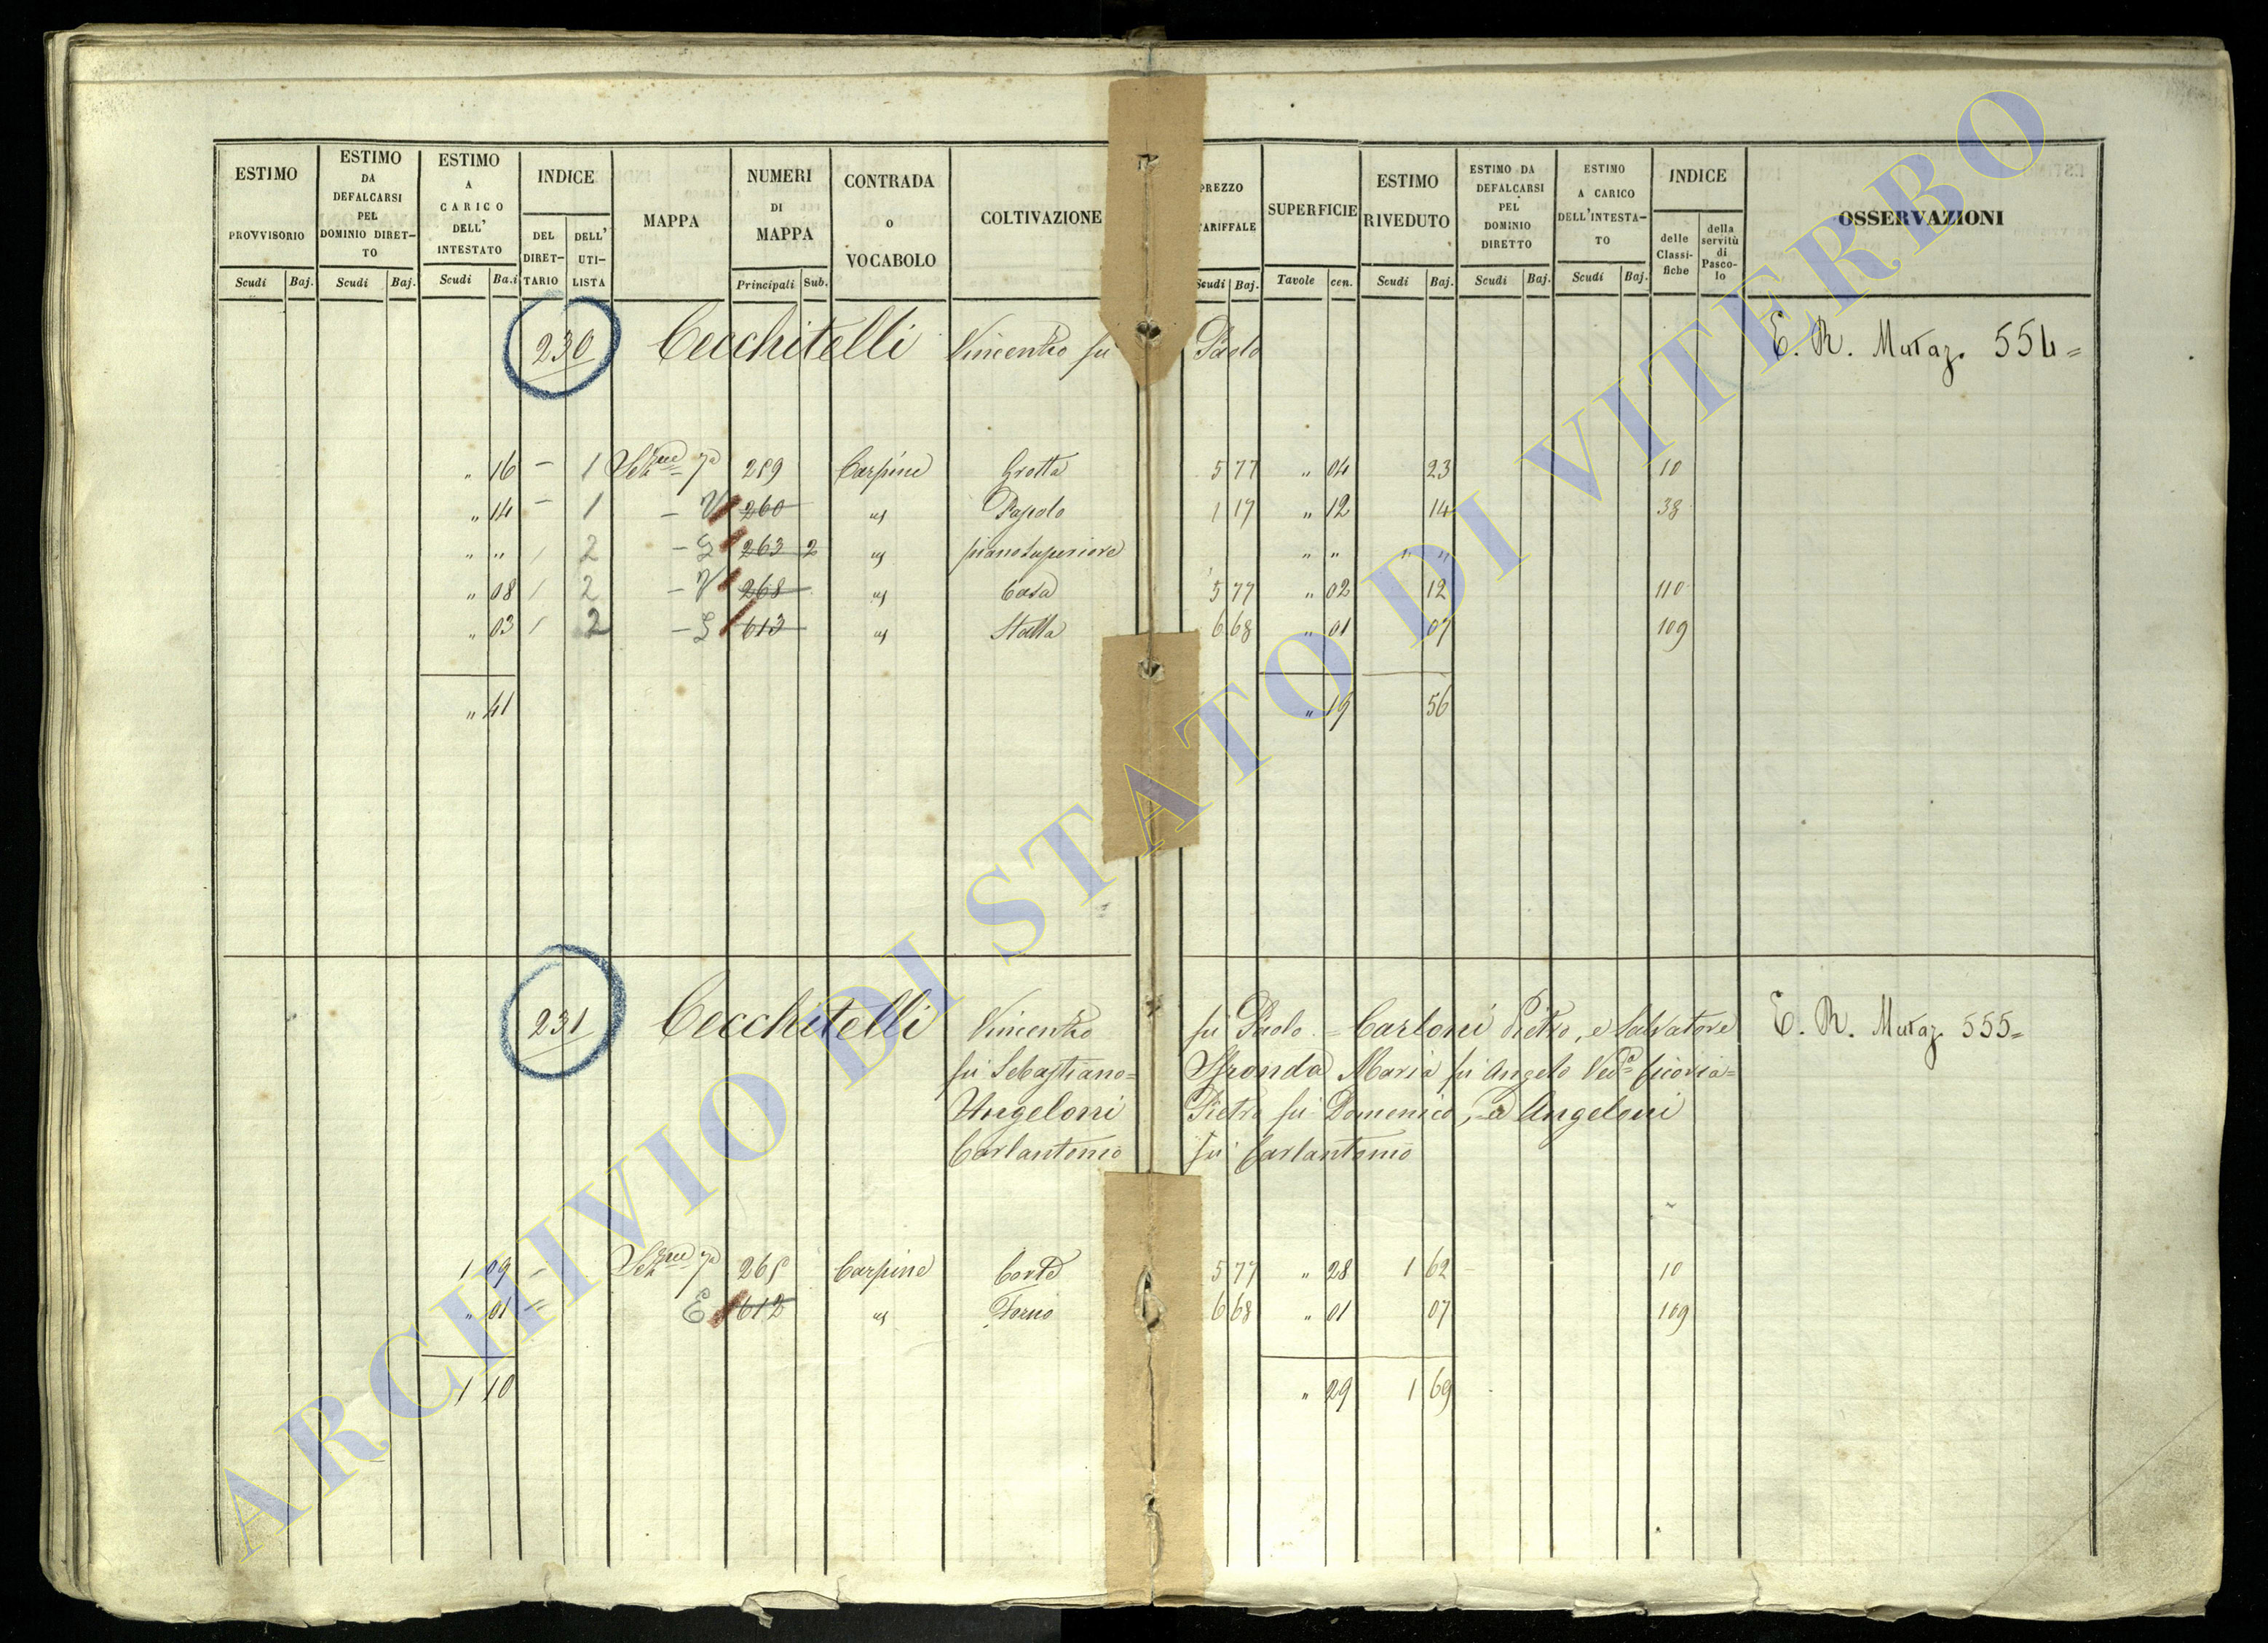 ESTIMO PROVVISORIO Scudi Baj.
ESTIMO DA DEFALCARSI PEL DOMINIO DIRET-TO Scudi Baj.
ESTIMO A CARICO DELL' INTESTATO Scudi Ba.i
INDICE DEL DIRET-TARIO DELL' UTI-LISTA
MAPPA
NUMERI DI MAPPA Principali Sub.
CONTRADA o VOCABOLO
COLTIVAZIONE
PREZZO TARIFFALE Scudi Baj.
SUPERFICIE Tavole cen.
ESTIMO RIVEDUTO Scudi Baj.
ESTIMO DA DEFALCARSI PEL DOMINIO DIRETTO Scudi Baj.
ESTIMO A CARICO DELL'INTESTA-TO Scudi Baj.
INDICE delle Classi-fiche della servitù di Pasco-lo
OSSERVAZIONI
230 Cecchitelli Vincenzo fu Paolo E. R. Mutaz. 554=
„ 16 – 1 Sezne 7a 259 Carpine Grotta 5 77 „ 04 23 10
„ 14 – 1 – V 260 „ 1 17 „ 12 14 38
„ „ / 2 – G 263 2 „ piano superiore „ „ „ „
„ 08 / 2 – V 268 „ Casa 5 77 „ 02 12 110
„ 03 / 2 – G 613 „ Stalla 6 68 „ 01 07 109
„ 41 „ 19 56
231 Cecchitelli Vincenzo fu Paolo = Carloni Pietro, e Salvatore E. R. Mutaz. 555=
fu Sebastiano= Sfronda Maria fu Angelo Veda
Angeloni Pietro fu Domenico, e Angeloni
Carlantonio fu Carlantonio
1 09 – Sezne 7a 265 Carpine Corte 5 77 „ 28 1 62 10
„ 01 = E 612 „ Forno 6 68 „ 01 07 109
1 10 „ 29 1 69
ARCHIVIO DI STATO DI VITERBO